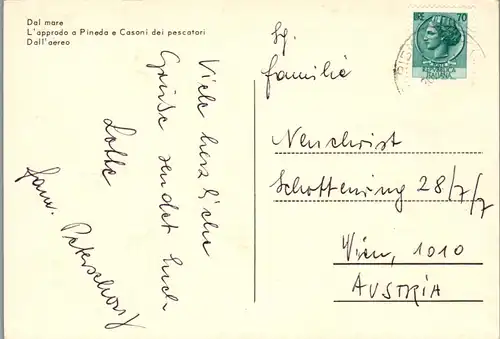 Dal mare
L'approdo a Pineda e Casoni dei pescatori
Dall'aereo
Viele herzliche
Grüße sendet Euch
Lotte
Fam.
LIRE 70
Sg.
Familie
Neuchrist
Schottenring 28/7/7
Wien, 1010
AUSTRIA